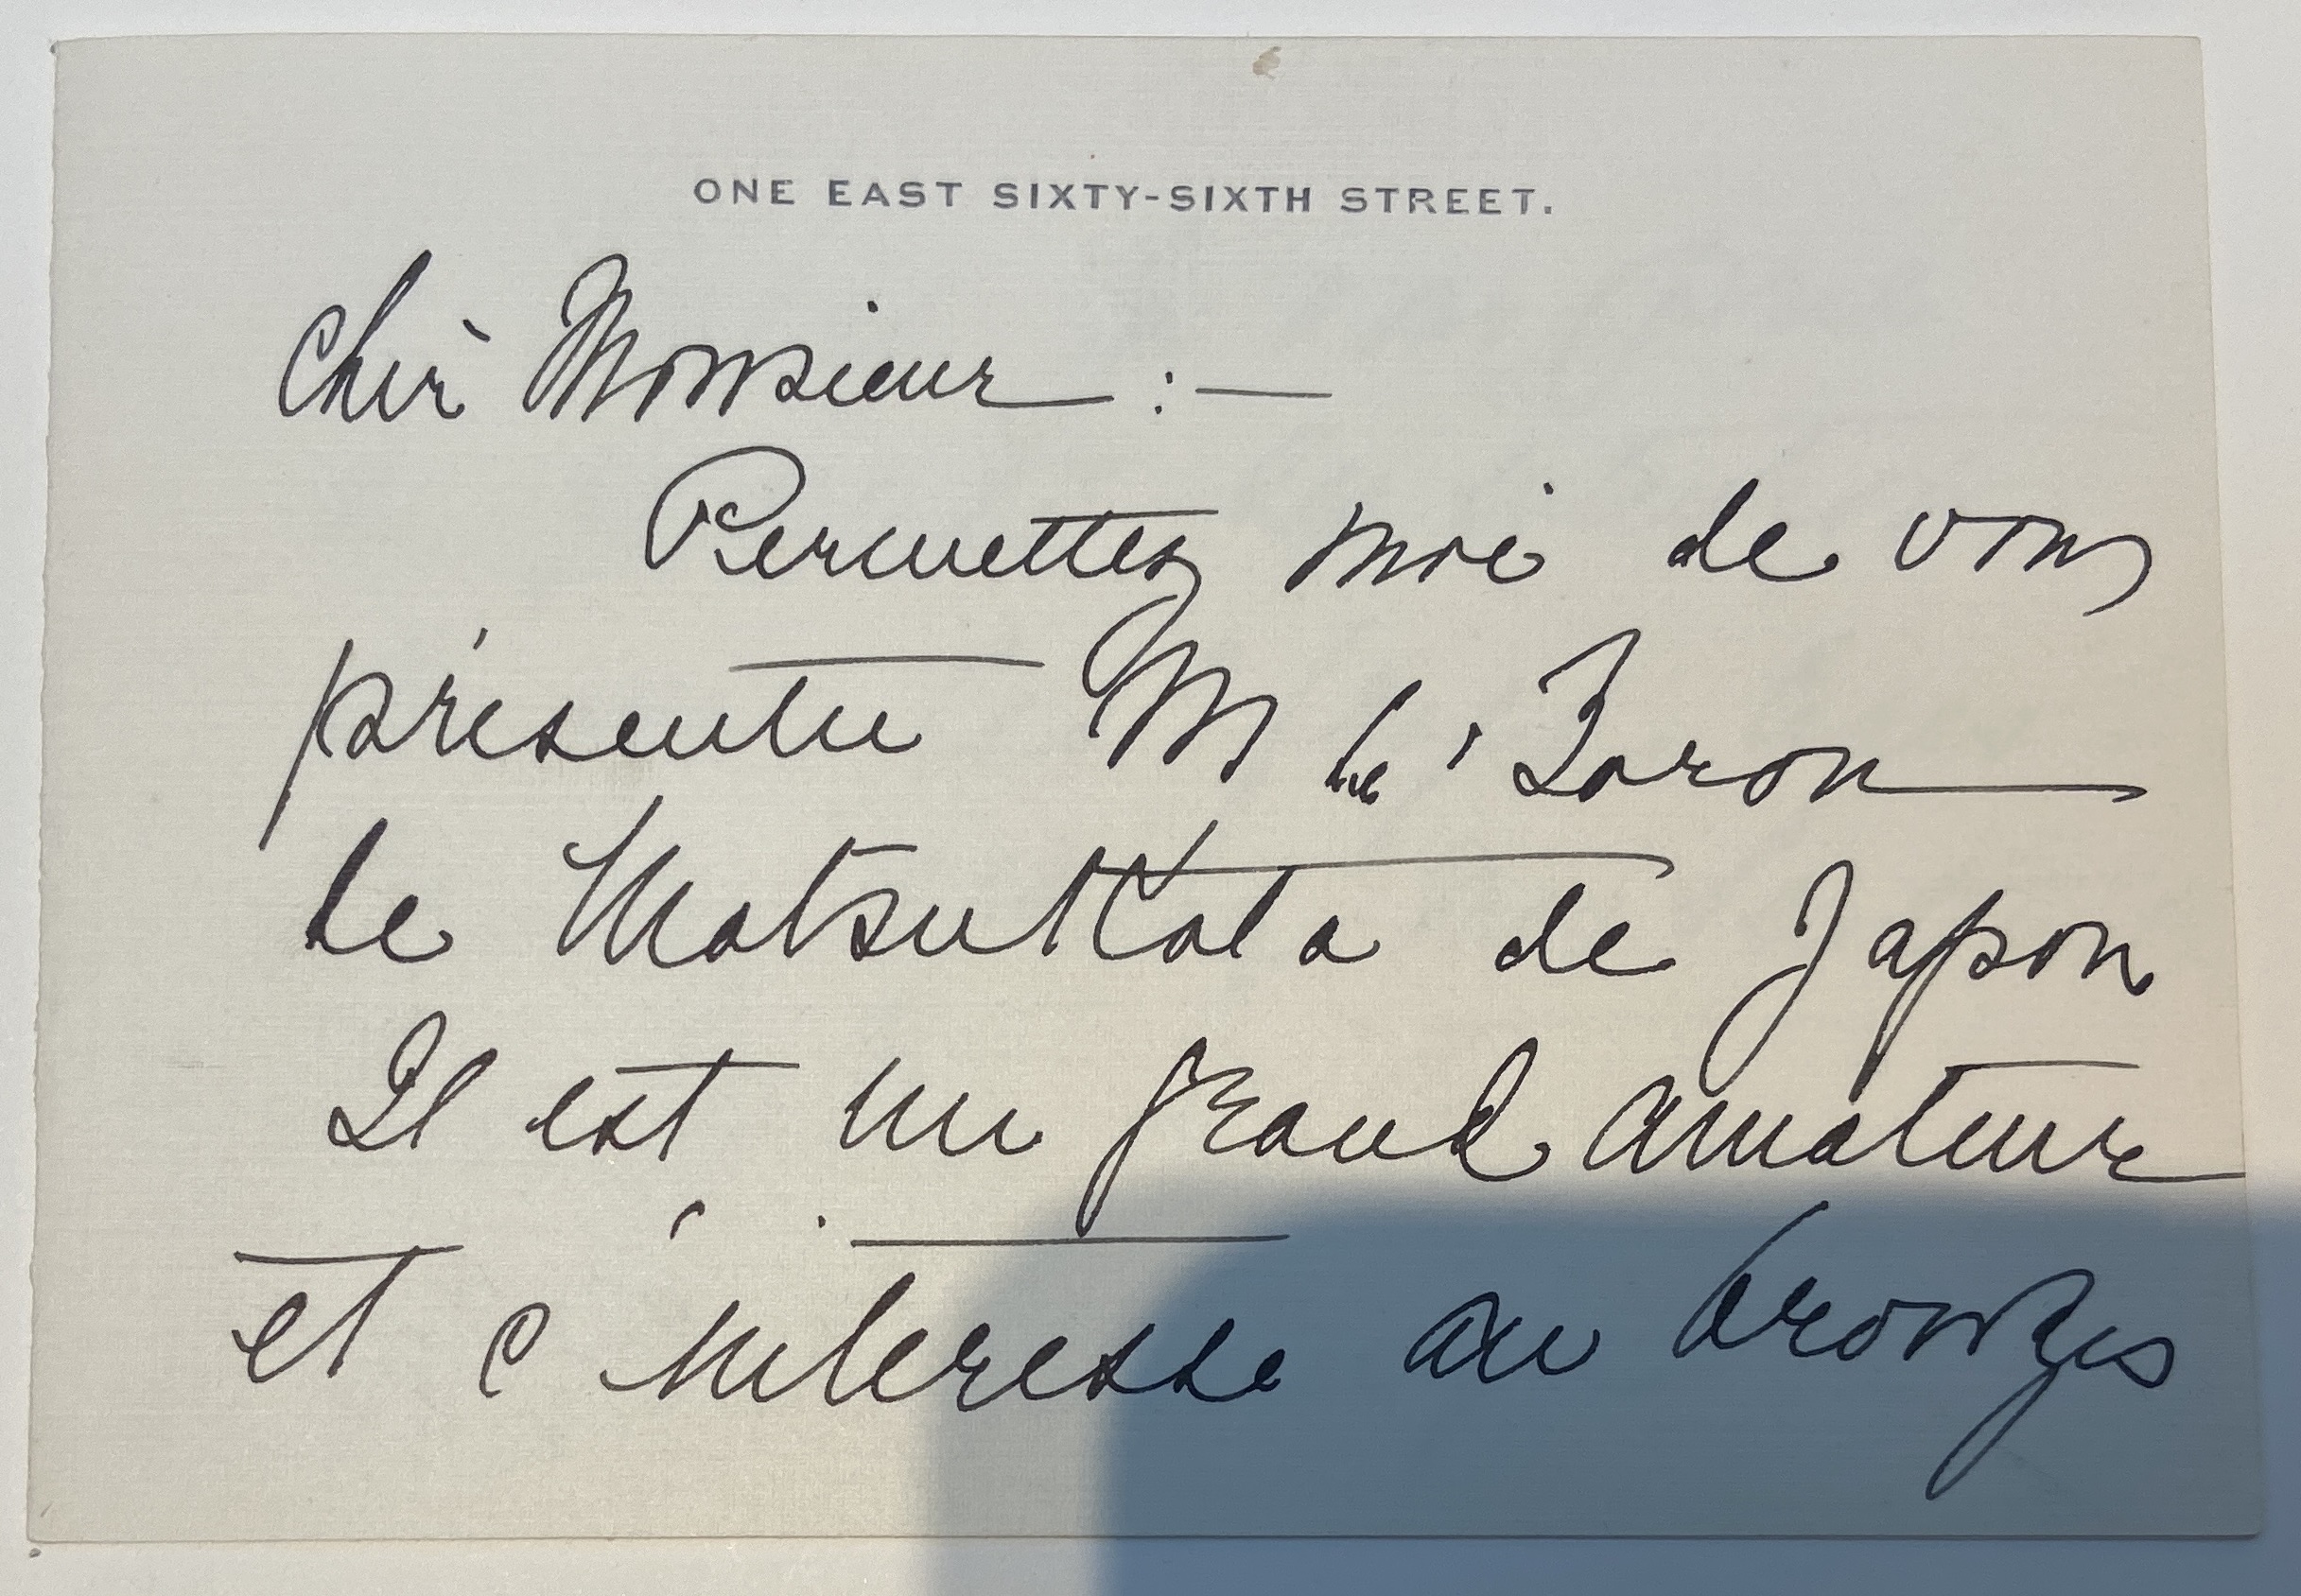 ONE EAST SIXTY-SIXTH STREET.
Cher Monsieur :—
Permettez moi de vous
présenter M le Baron
de Matsukata de Japon
Il est un grand amateur
et c'intéresse au bronzes